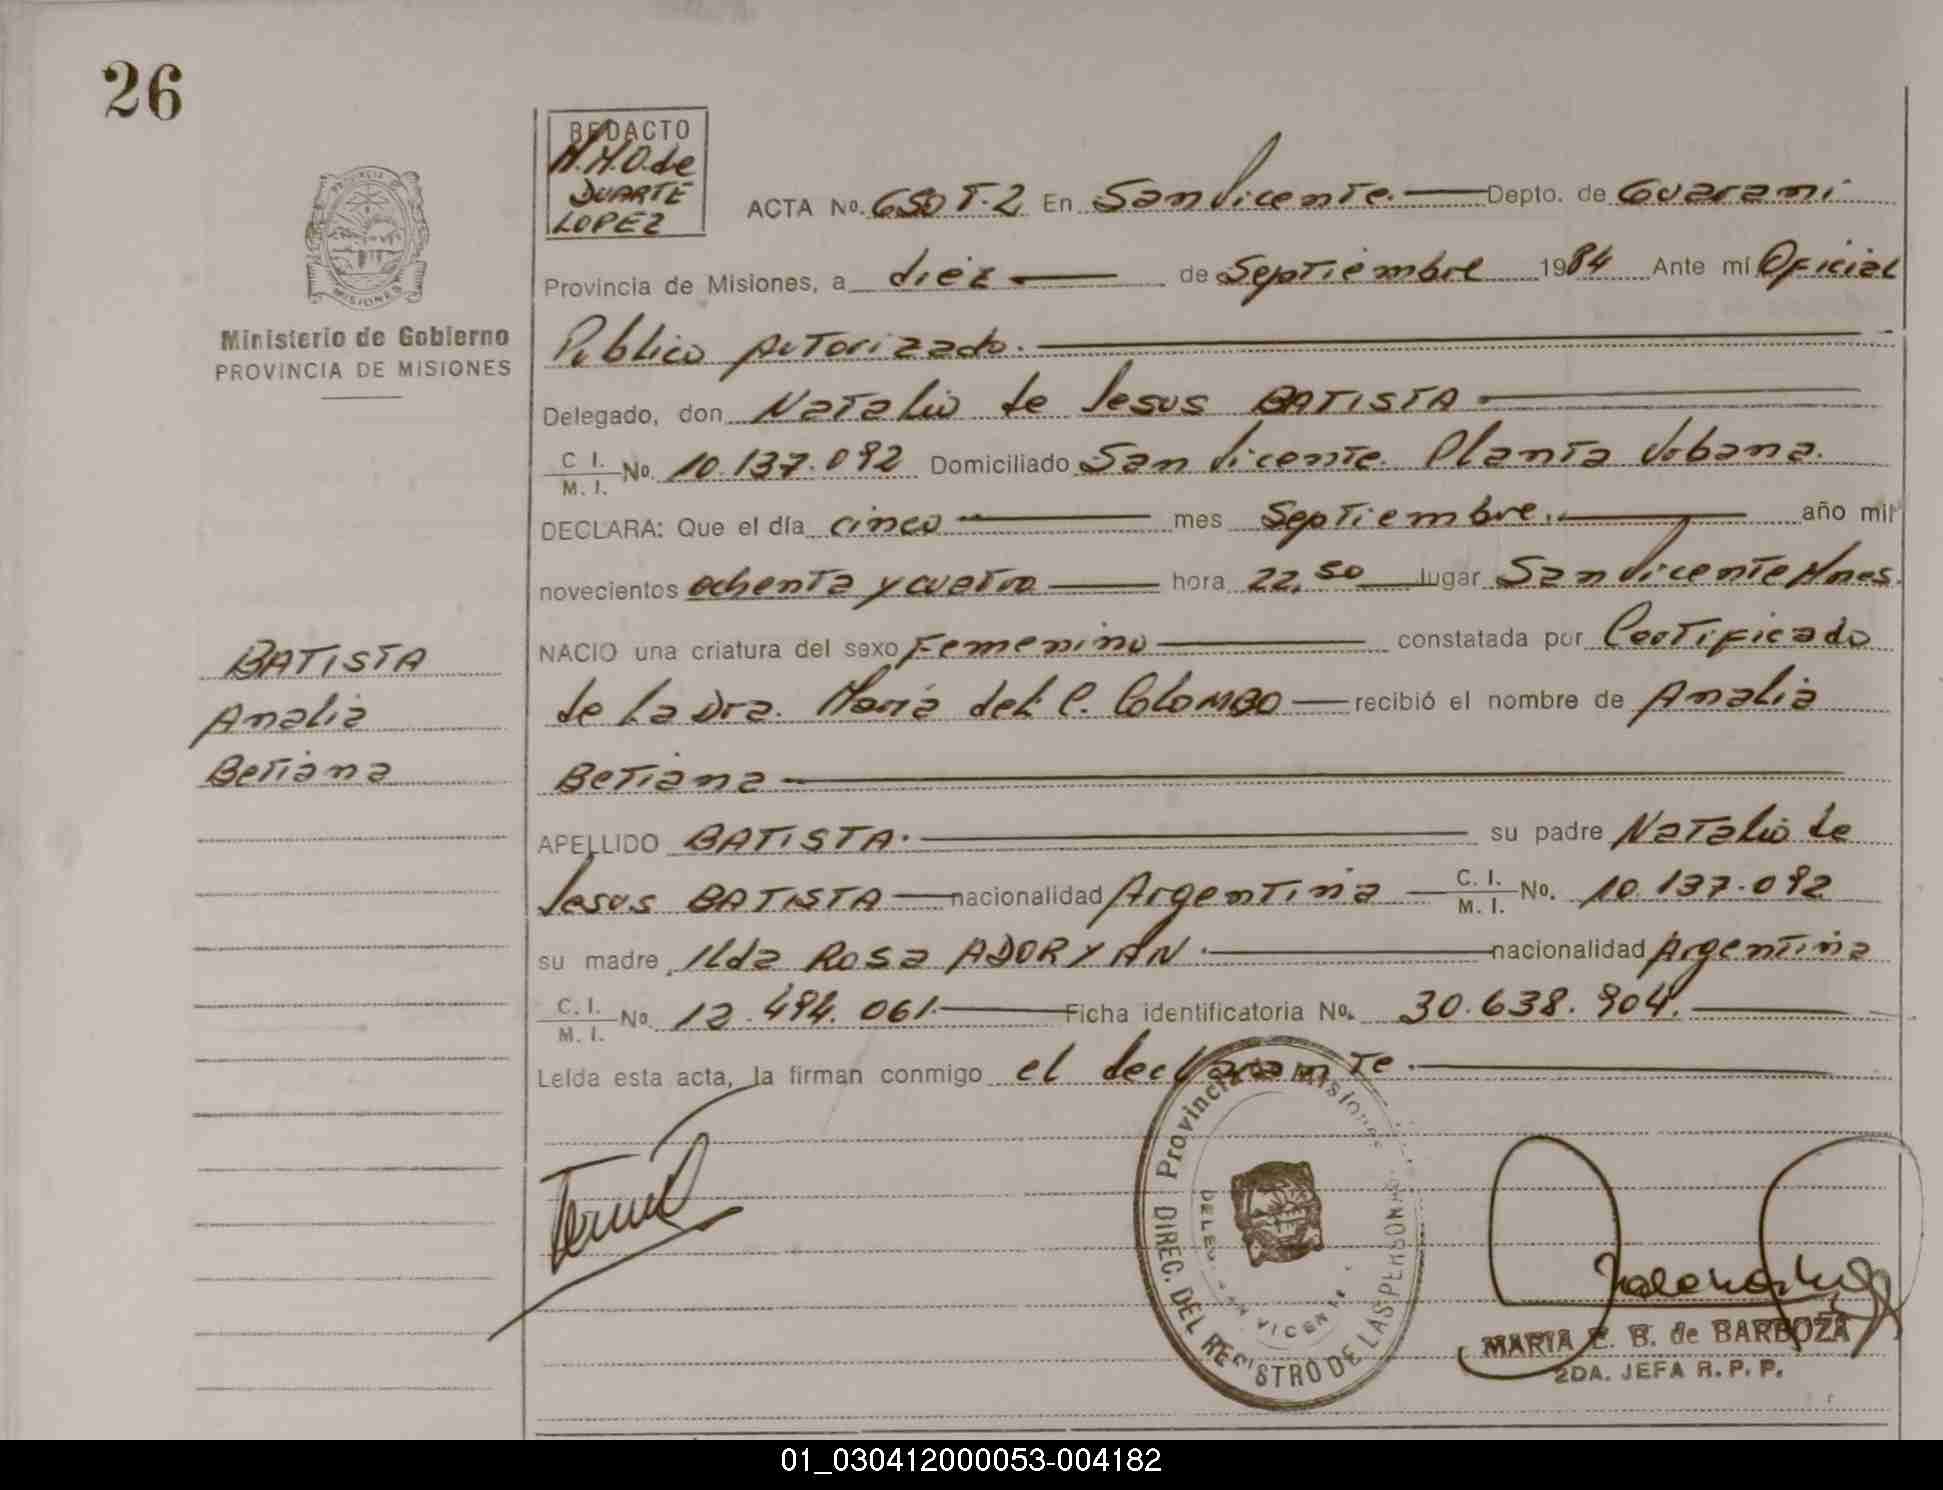 26
REDACTO
M.M.O. de
DUARTE
LOPEZ
PROVINCIA DE
MISIONES
Ministerio de Gobierno
PROVINCIA DE MISIONES
ACTA No. 650 T-2 En San Vicente. Depto. de Guarani
Provincia de Misiones, a diez de Septiembre 1984 Ante mí Oficial
Publico Autorizado.
Delegado, don Natalio de Jesus BATISTA
C I. M. I. No. 10.137.092 Domiciliado San Vicente. Planta Urbana.
DECLARA: Que el día cinco mes Septiembre. año mil
novecientos ochenta y cuatro hora 22,50 lugar San Vicente Mnes.
NACIO una criatura del sexo Femenino constatada por Certificado
de la Dra. Maria del C. Colombo recibió el nombre de Analia
Betiana
BATISTA
Analia
Betiana
APELLIDO BATISTA. su padre Natalio de
Jesus BATISTA nacionalidad Argentina C. I. M. I. No. 10.137.092
su madre Ilda Rosa ADORYAN. nacionalidad Argentina
C. I. M. I. No. 12.494.061. Ficha identificatoria No. 30.638.904.
Leída esta acta, la firman conmigo el declarante.
Provincia de Misiones
DIREC. DEL REGISTRO DE LAS PERSONAS
DELEG. SAN VICENTE
MARIA E. B. de BARBOZA
2DA. JEFA R. P. P.
01_030412000053-004182